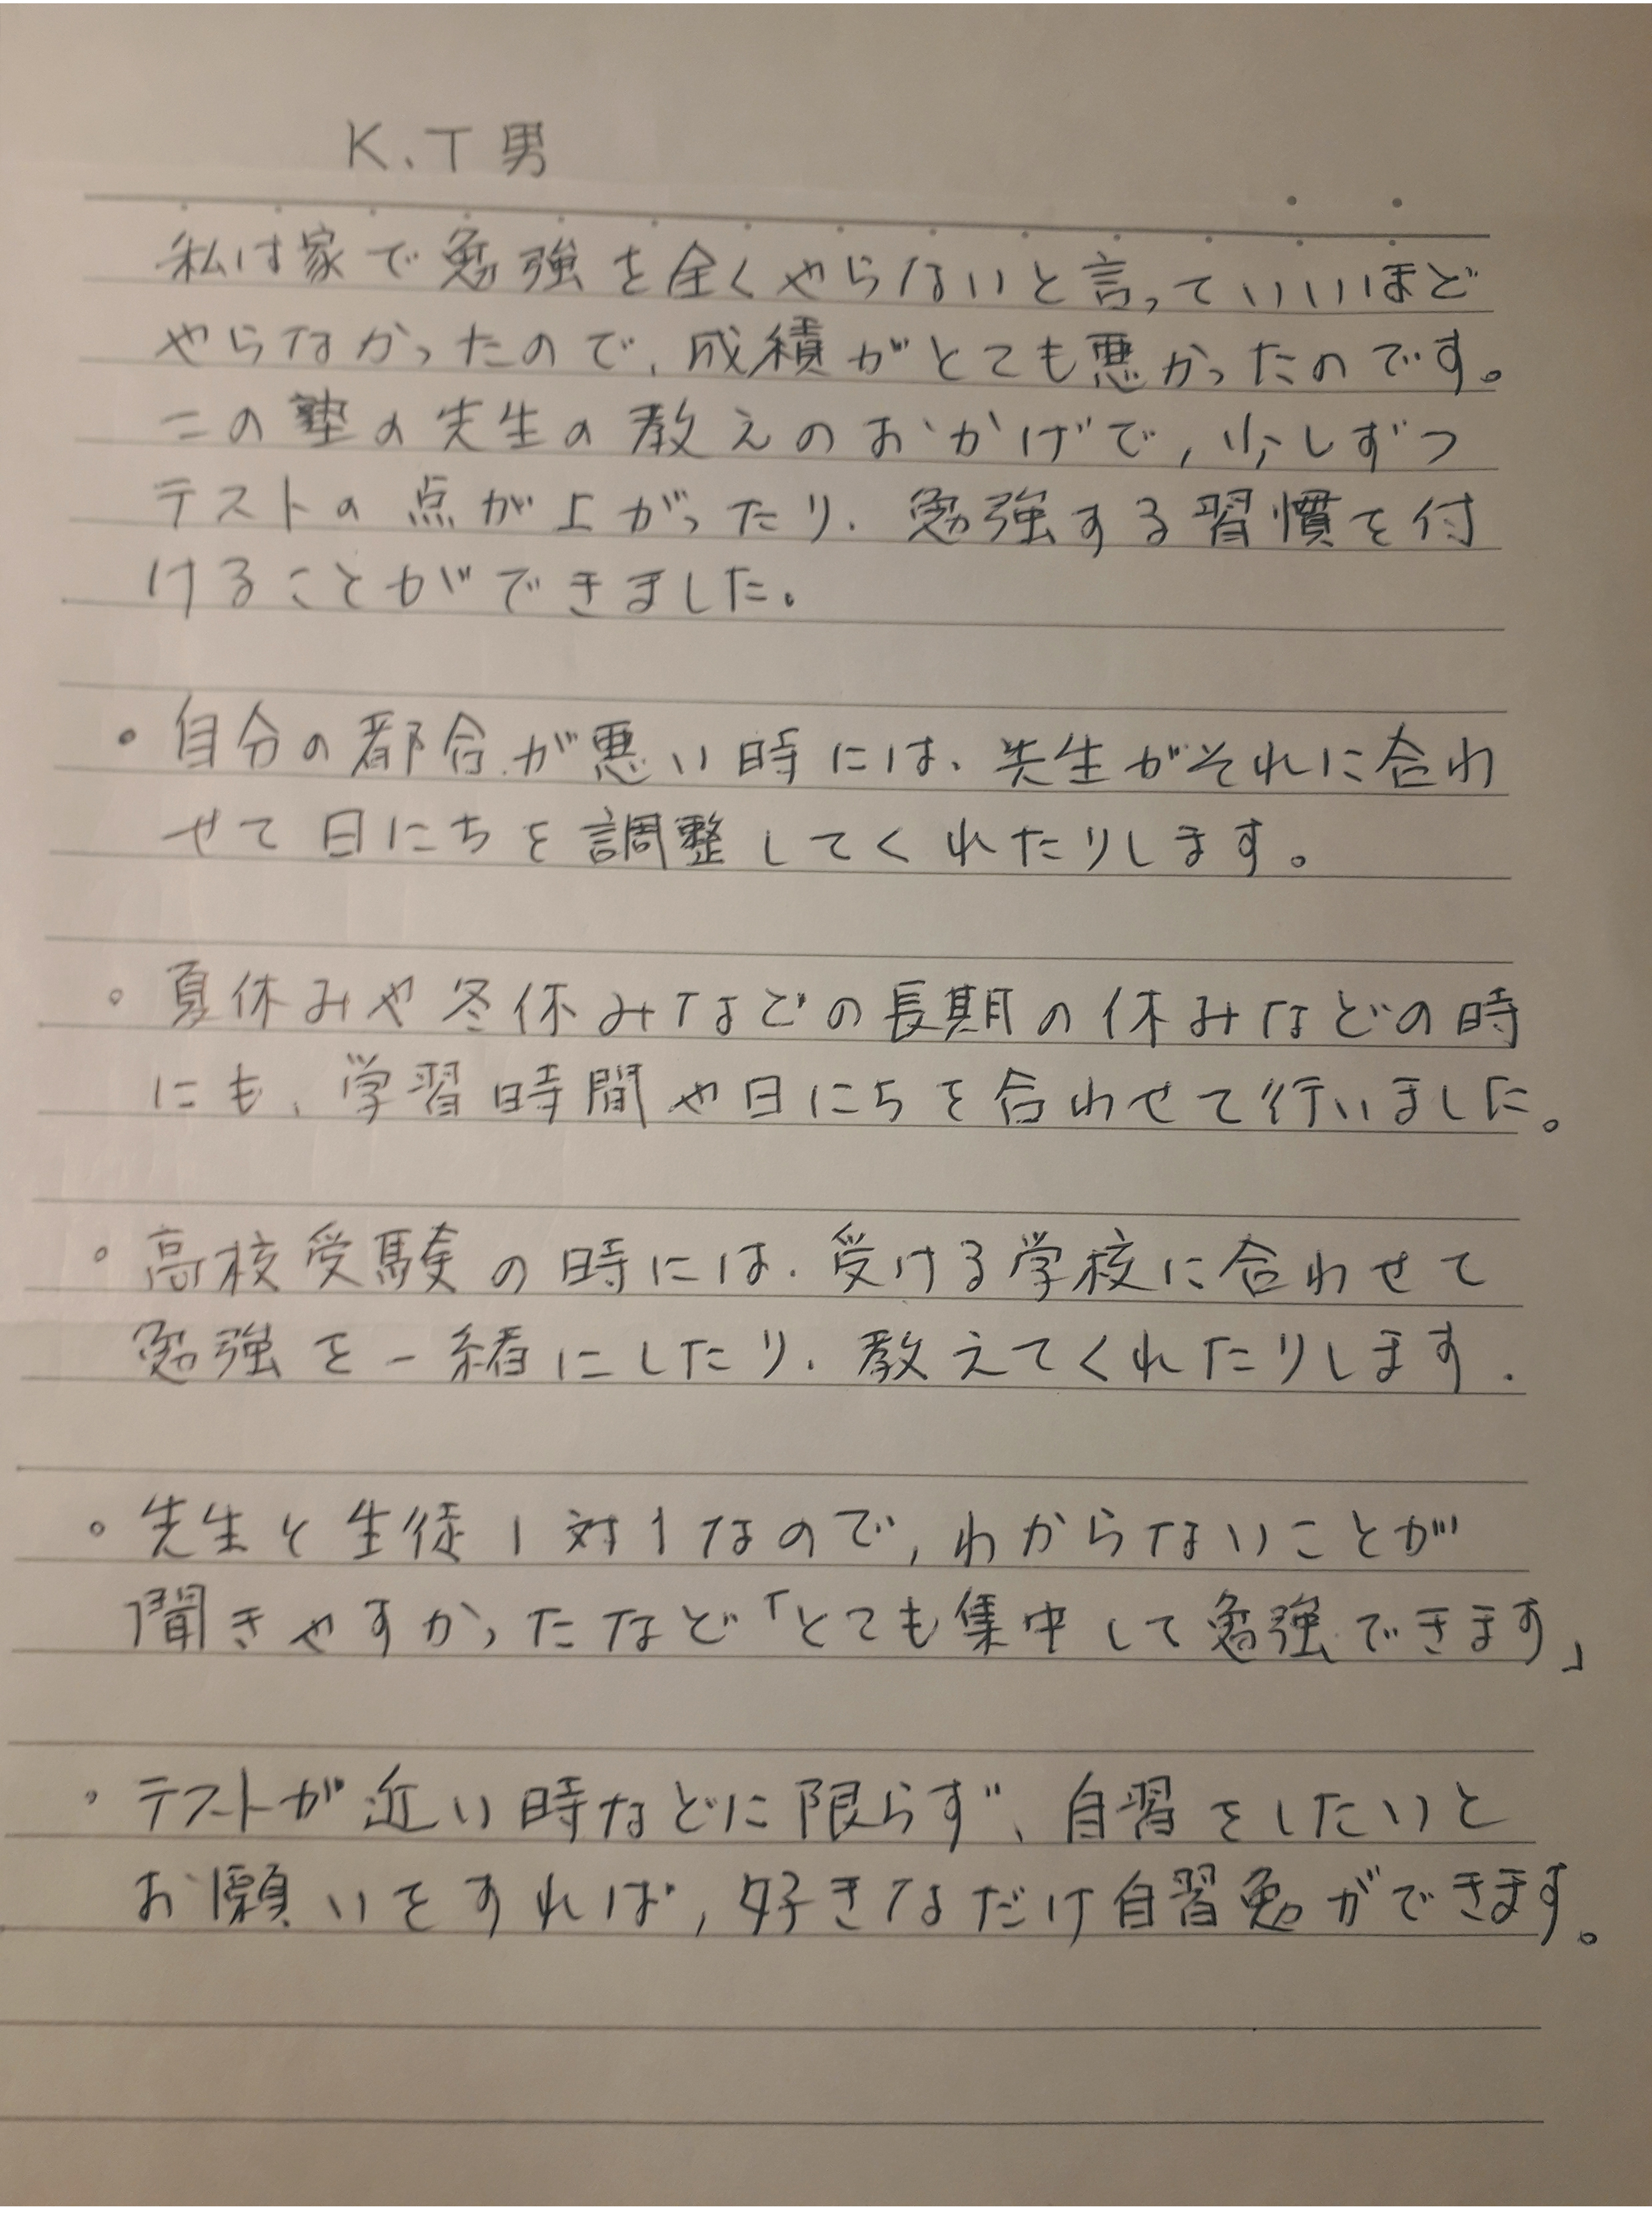 K.T男
私は家で勉強を全くやらないと言っていいほど
やらなかったので、成績がとても悪かったのです。
この塾の先生の教えのおかげで,少しずつ
テストの点が上がったり、勉強する習慣を付
けることができました。
・自分の都合が悪い時には、先生がそれに合わ
せて日にちを調整してくれたりします。
。夏休みや冬休みなどの長期の休みなどの時
にも、学習時間や日にちを合わせて行いました。
。高校受験の時には、受ける学校に合わせて
勉強を一緒にしたり、教えてくれたりします.
。先生と生徒1対1なので,わからないことが
聞きやすかったなど「とても集中して勉強できます」
・テストが近い時などに限らず、自習をしたいと
お願いをすれば,好きなだけ自習勉ができます。